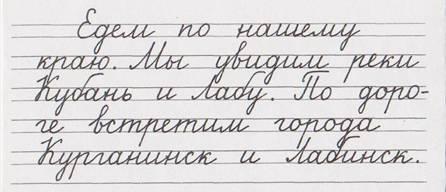 Едем по нашему
краю. Мы увидим реки
Кубань и Лабу. По доро-
ге встретим города
Курганинск и Лабинск.